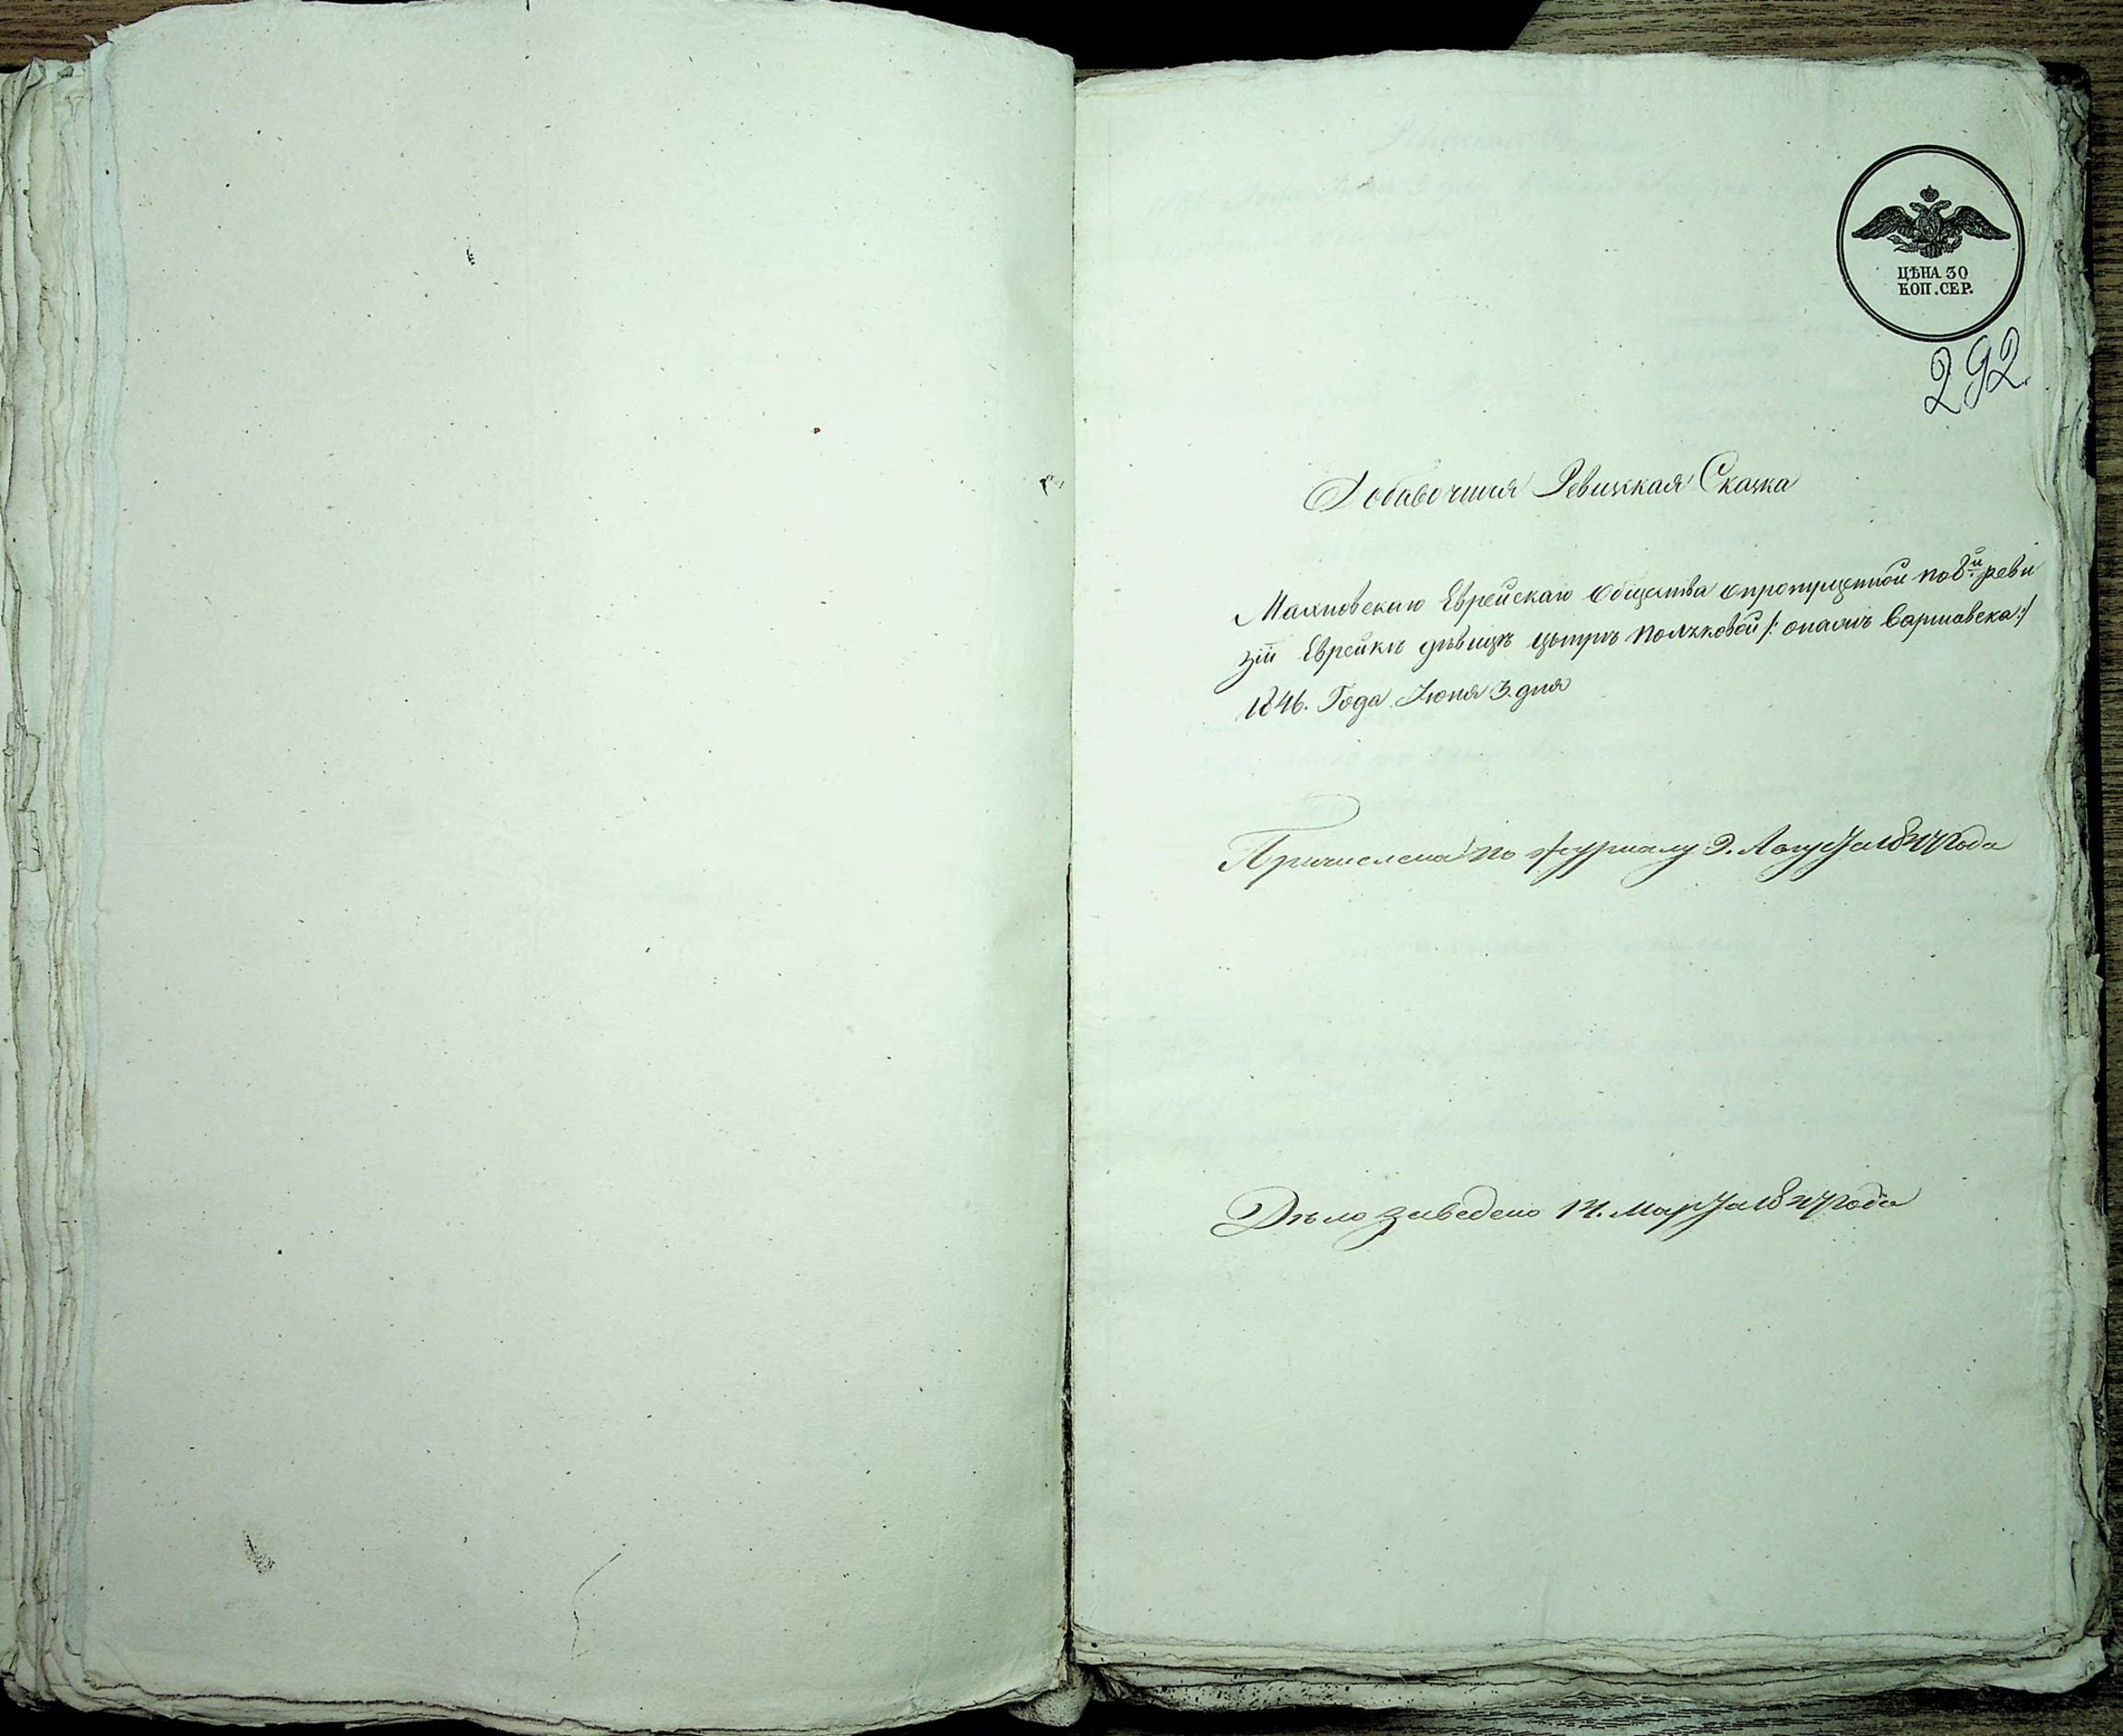 ЦѢНА 30
КОП. СЕР.
292
Добавочная Ревизкая Сказка
Махновскаго Еврейскаго Общества опропущенной по 8й реви
зіи Еврейкѣ дѣвицѣ Цыпрѣ /: онажъ Варшавска :/
1846. Года Июня 3. дня
Причислена по журналу 9. Августа 1847 года
Дѣло заведено 14. Марта 1847 года